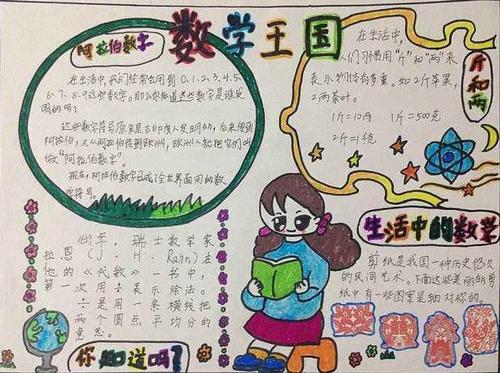 数学王国
阿拉伯数字
在生活中,我们经常会用到0、1、2、3、4、5、
6、7、8、9这些数字。那么你知道这些数字是谁发
明的吗?
这些数字符号原来是古印度人发明的,后来传到
阿拉伯,又从阿拉伯传到欧洲,欧洲人就把它们叫
做“阿拉伯数字”。
现在,阿拉伯数字已成了全世界通用的数
字符号。
斤和两
在生活中,
人们习惯用“斤”和“两”来
表示物体有多重。如2斤苹果,
2两茶叶。
1斤=10两 1斤=500克
2斤=1千克
生活中的数学
剪纸是我国一种历史悠久
的民间艺术。下面这些美丽的剪
纸中有一些图案是轴对称的。
年,瑞士数学家
拉恩(J.H.Rahn)在
他的《代数》一书中,
第一次用÷表示除法。
÷是用一条横线把
两个圆点平均分的
意思。
你知道吗?